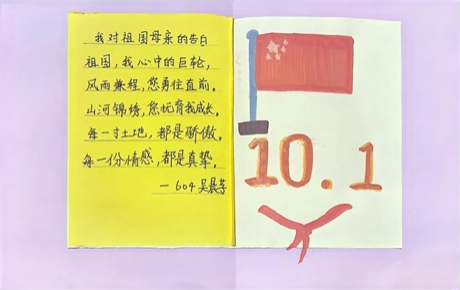 我对祖国母亲的告白
祖国,我心中的巨轮,
风雨兼程,您勇往直前。
山河锦绣,您抚育我成长。
每一寸土地,都是骄傲。
每一份情感,都是真挚。
— 604 吴晨
10.1